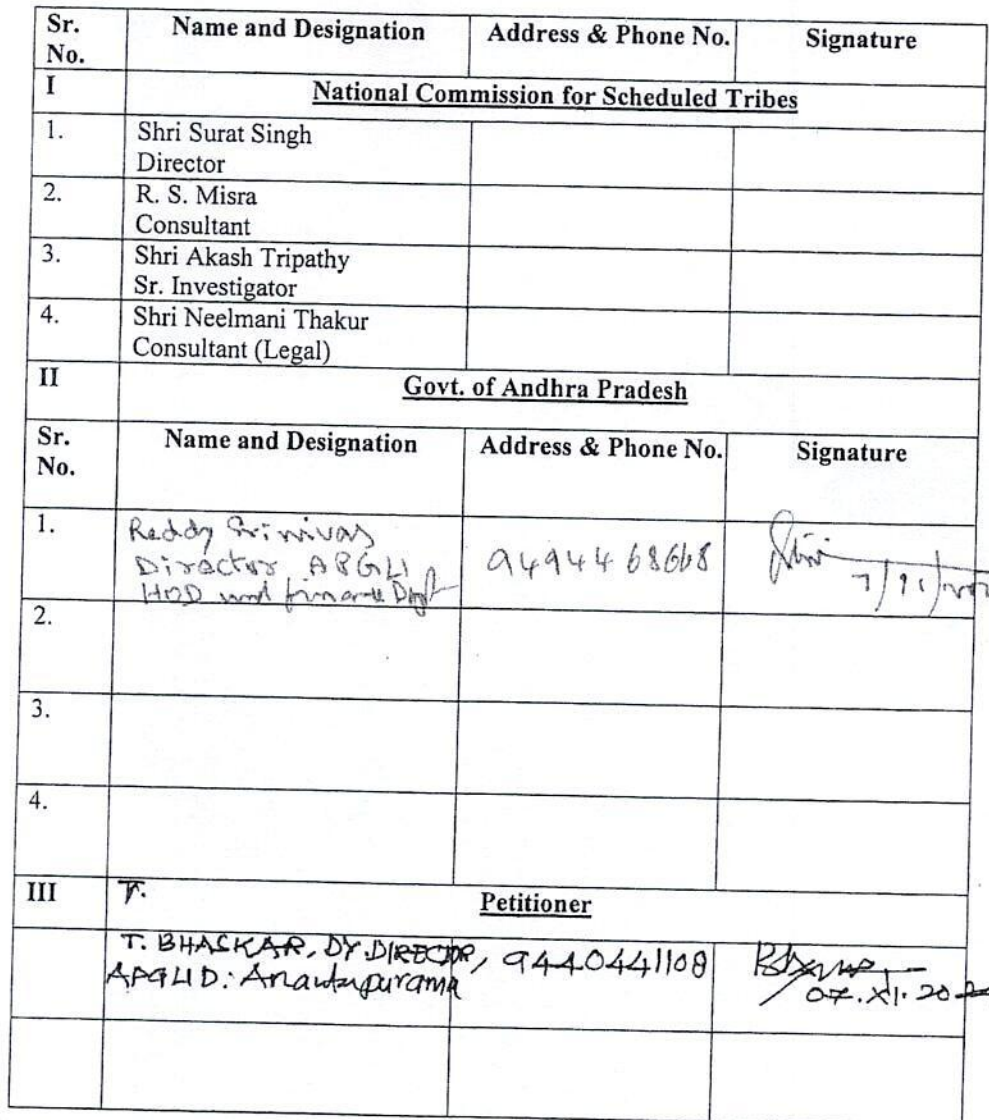 Sr. No. Name and Designation Address & Phone No. Signature
I National Commission for Scheduled Tribes
1. Shri Surat Singh
Director
2. R. S. Misra
Consultant
3. Shri Akash Tripathy
Sr. Investigator
4. Shri Neelmani Thakur
Consultant (Legal)
II Govt. of Andhra Pradesh
Sr. No. Name and Designation Address & Phone No. Signature
1. Reddy Srinivas
Director APGLI 9494468668
HOD Dept 7/11/
2.
3.
4.
III T. Petitioner
T. BHASKAR, DY.DIRECTOR, 9440441108
APGLID: Anantapurama 07.XI.20